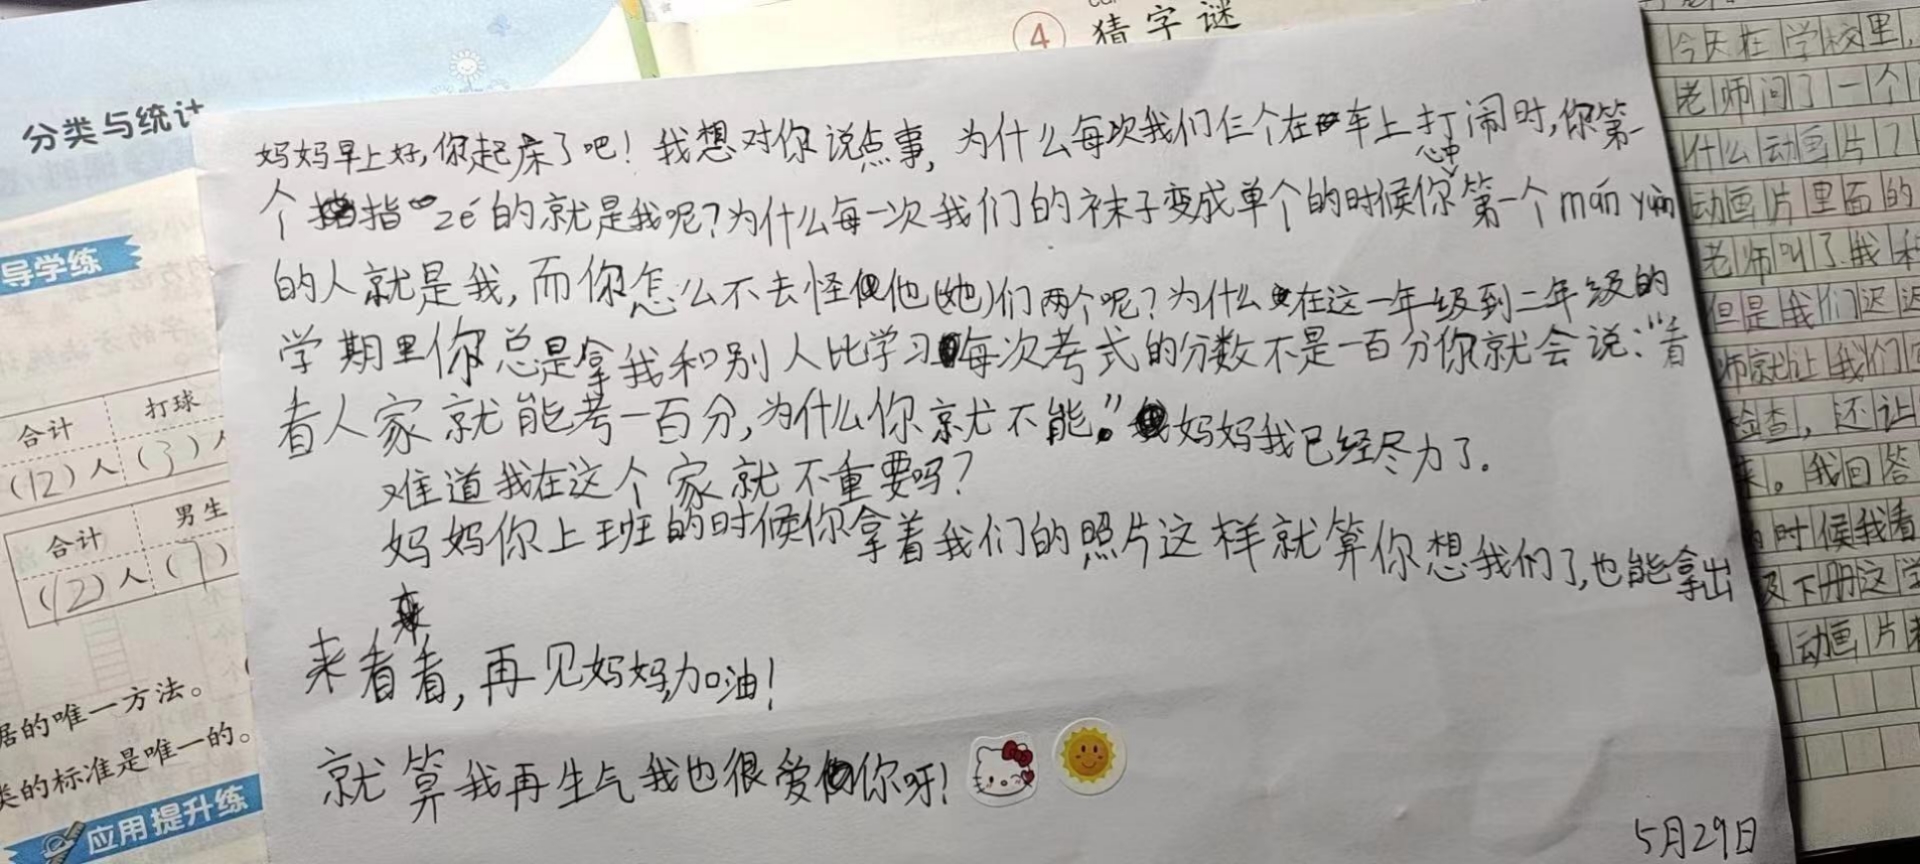 ④ 猜字谜
分类与统计
导学练
合计 打球
(12)人 (3)人
合计 男生
(12)人 (7)
居的唯一方法。
类的标准是唯一的。
应用提升练
妈妈早上好,你起床了吧!我想对你说点事,为什么每次我们仨个在车上打闹时,你第一
个指zé的就是我呢?为什么每一次我们的袜子变成单个的时候你心中第一个mán yuàn
的人就是我,而你怎么不去怪他(她)们两个呢?为什么在这一年级到二年级的
学期里你总是拿我和别人比学习每次考式的分数不是一百分你就会说:“看
看人家就能考一百分,为什么你就不能。”妈妈我已经尽力了。
难道我在这个家就不重要吗?
妈妈你上班的时候你拿着我们的照片这样就算你想我们了,也能拿出
来看看,再见妈妈,加油!
就算我再生气我也很爱你呀!
5月29日
今天在学校里,
老师问了一个
什么动画片?
动画片里面的
老师叫了我和
但是我们迟迟
师就让我们
检查,还让
来。我回答
时候我看
及下册这学
动画片